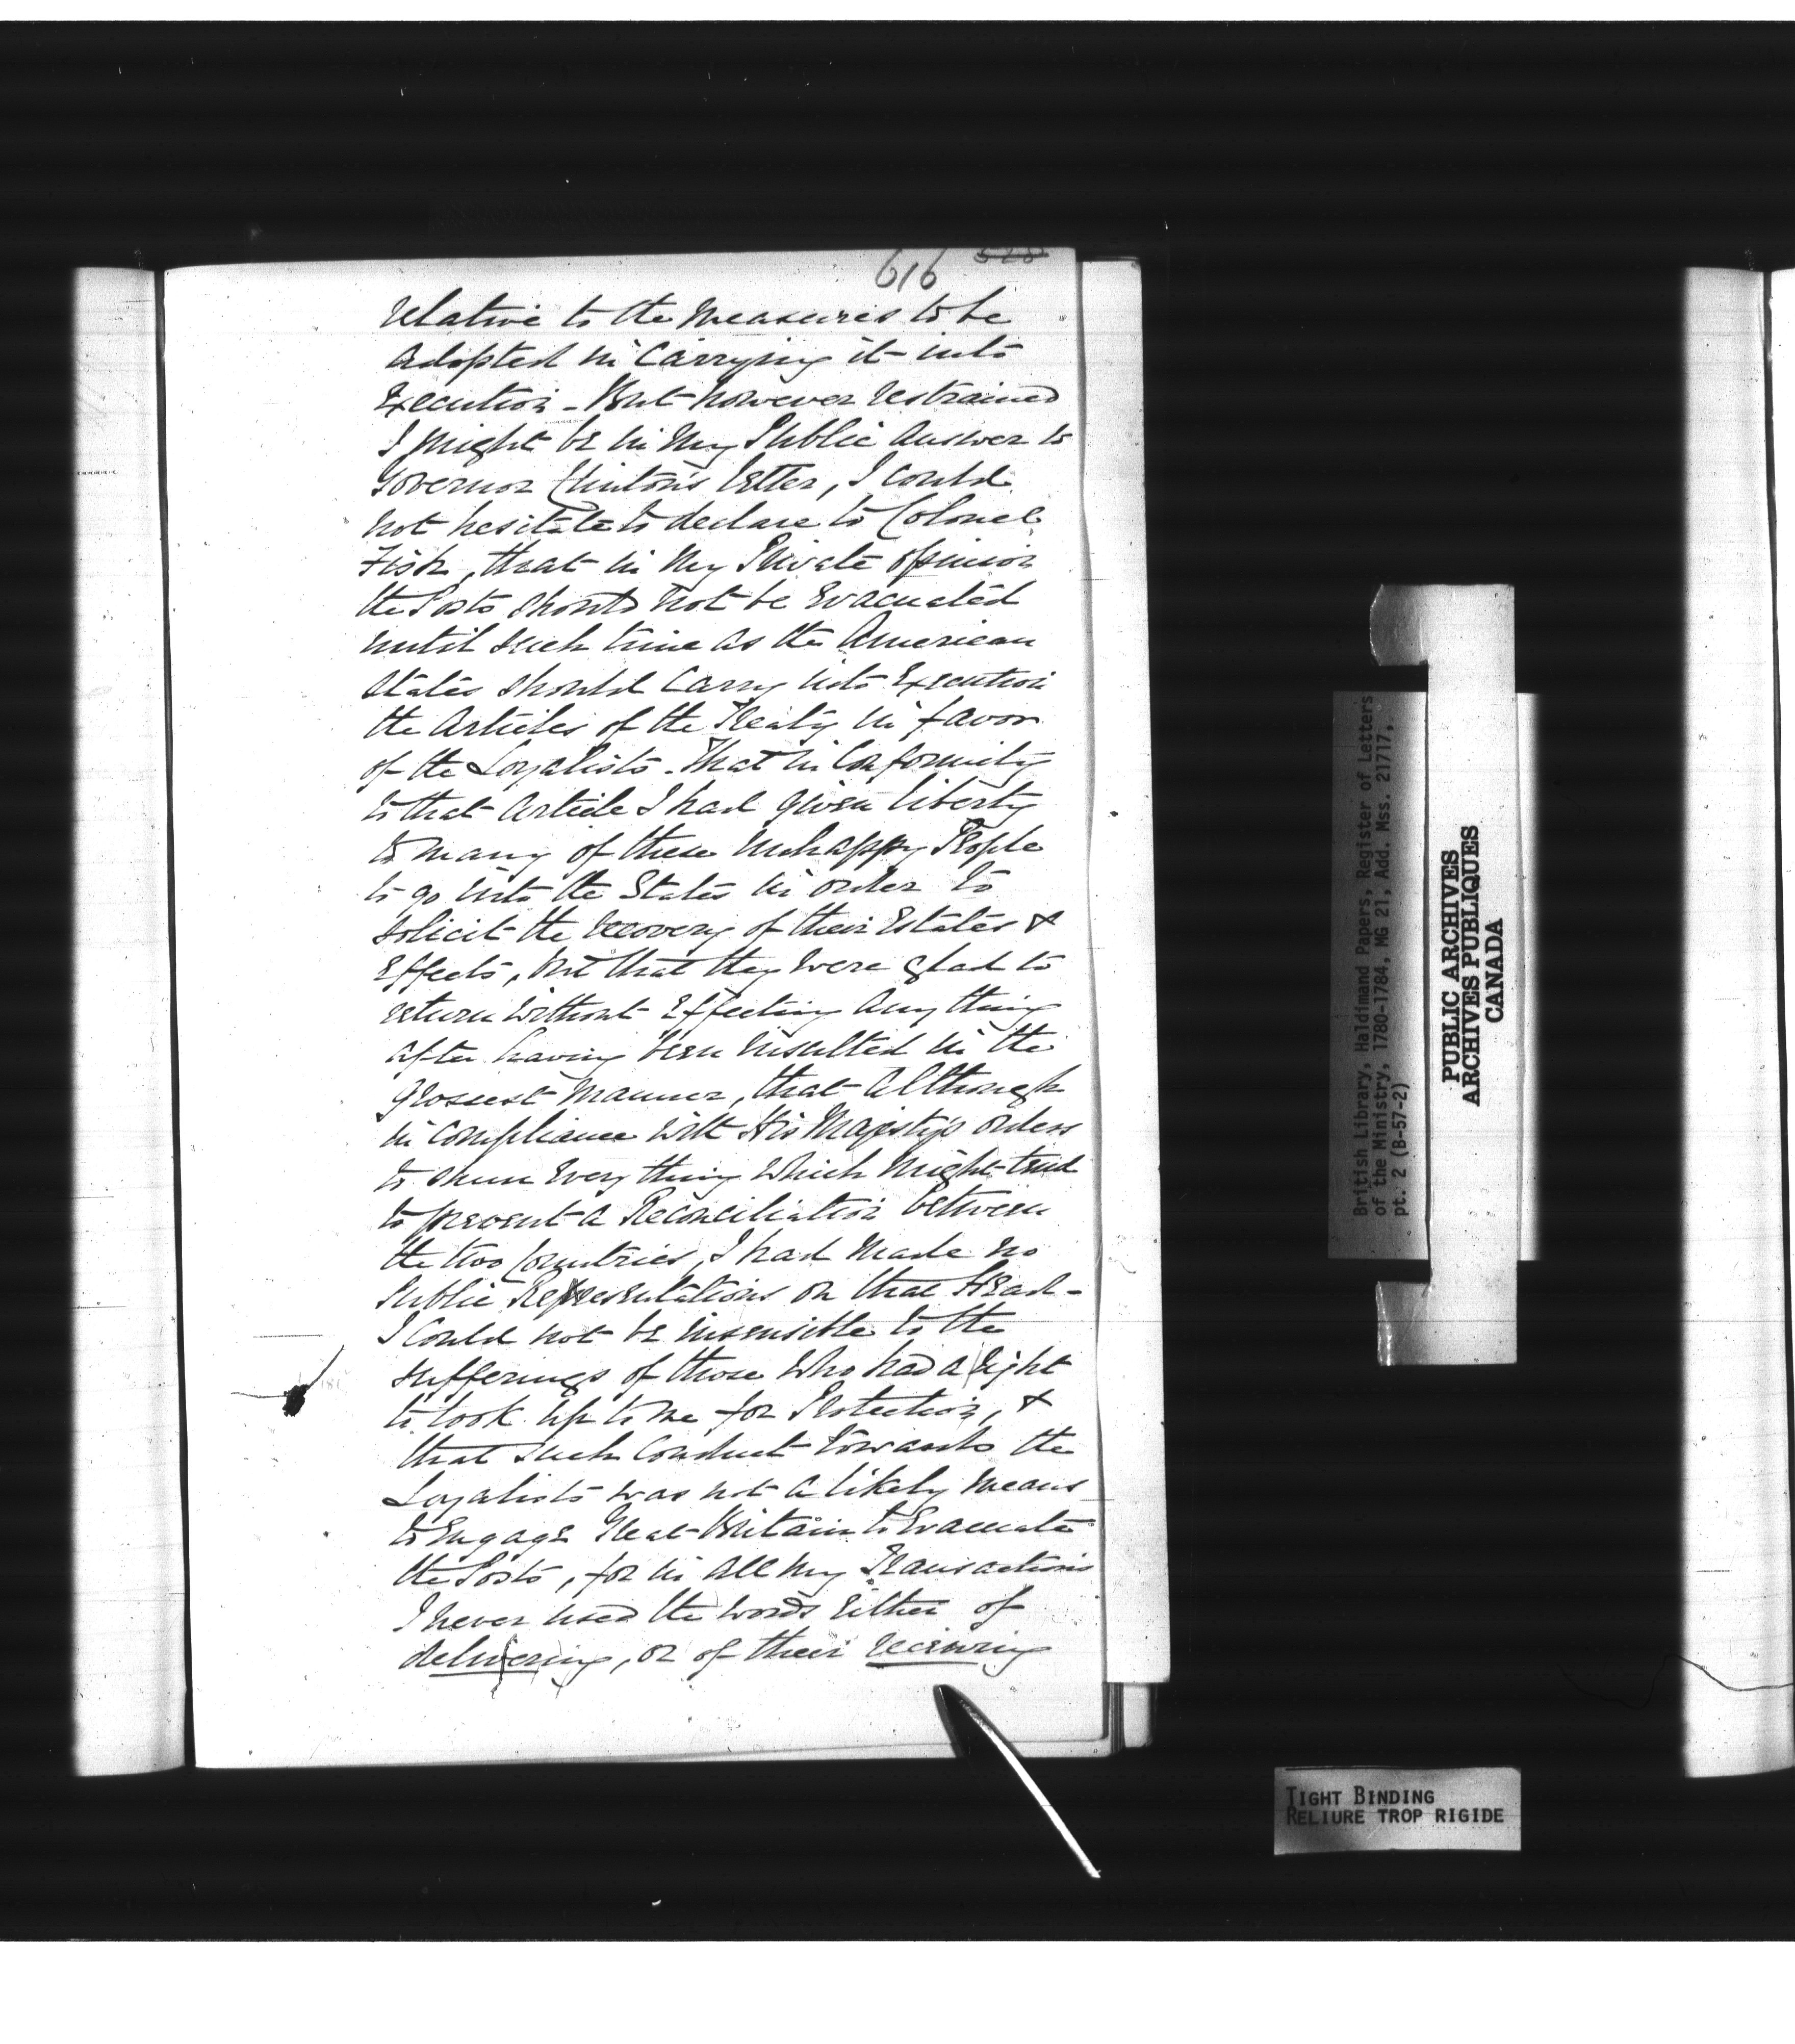 616 528
relative to the Measures to be
adopted in Carrying it into
Execution - But however restrained
I might be in My Public Answer to
Governor Clinton's letter, I could
not hesitate to declare to Colonel
Fish, that in My Private opinion
the Posts should not be Evacuated
until such time as the American
States should Carry into Execution
the Articles of the Treaty in favor
of the Loyalists - That in Conformity
to that Article I had given liberty
to many of these Unhappy People
to go into the States in order to
solicit the recovery of their Estates &
Effects, but that they were glad to
return without Effecting Any thing
after having been insulted in the
grossest Manner, that Although
in compliance with His Majesty's orders
to shun Every thing which Might tend
to prevent a Reconciliation between
the two Countries, I had made no
Public Representations on that Head -
I Could not be insensible to the
sufferings of those Who had a right
to look up to me for Protection, &
that such Conduct towards the
Loyalists was not a likely Means
to Engage Great Britain to Evacuate
the Posts, for in All my Transactions
I never used the words Either of
delivering, or of their receiving
British Library, Haldimand Papers, Register of Letters
of the Ministry, 1780-1784, MG 21, Add. Mss. 21717,
pt. 2 (B-57-2)
PUBLIC ARCHIVES
ARCHIVES PUBLIQUES
CANADA
TIGHT BINDING
RELIURE TROP RIGIDE